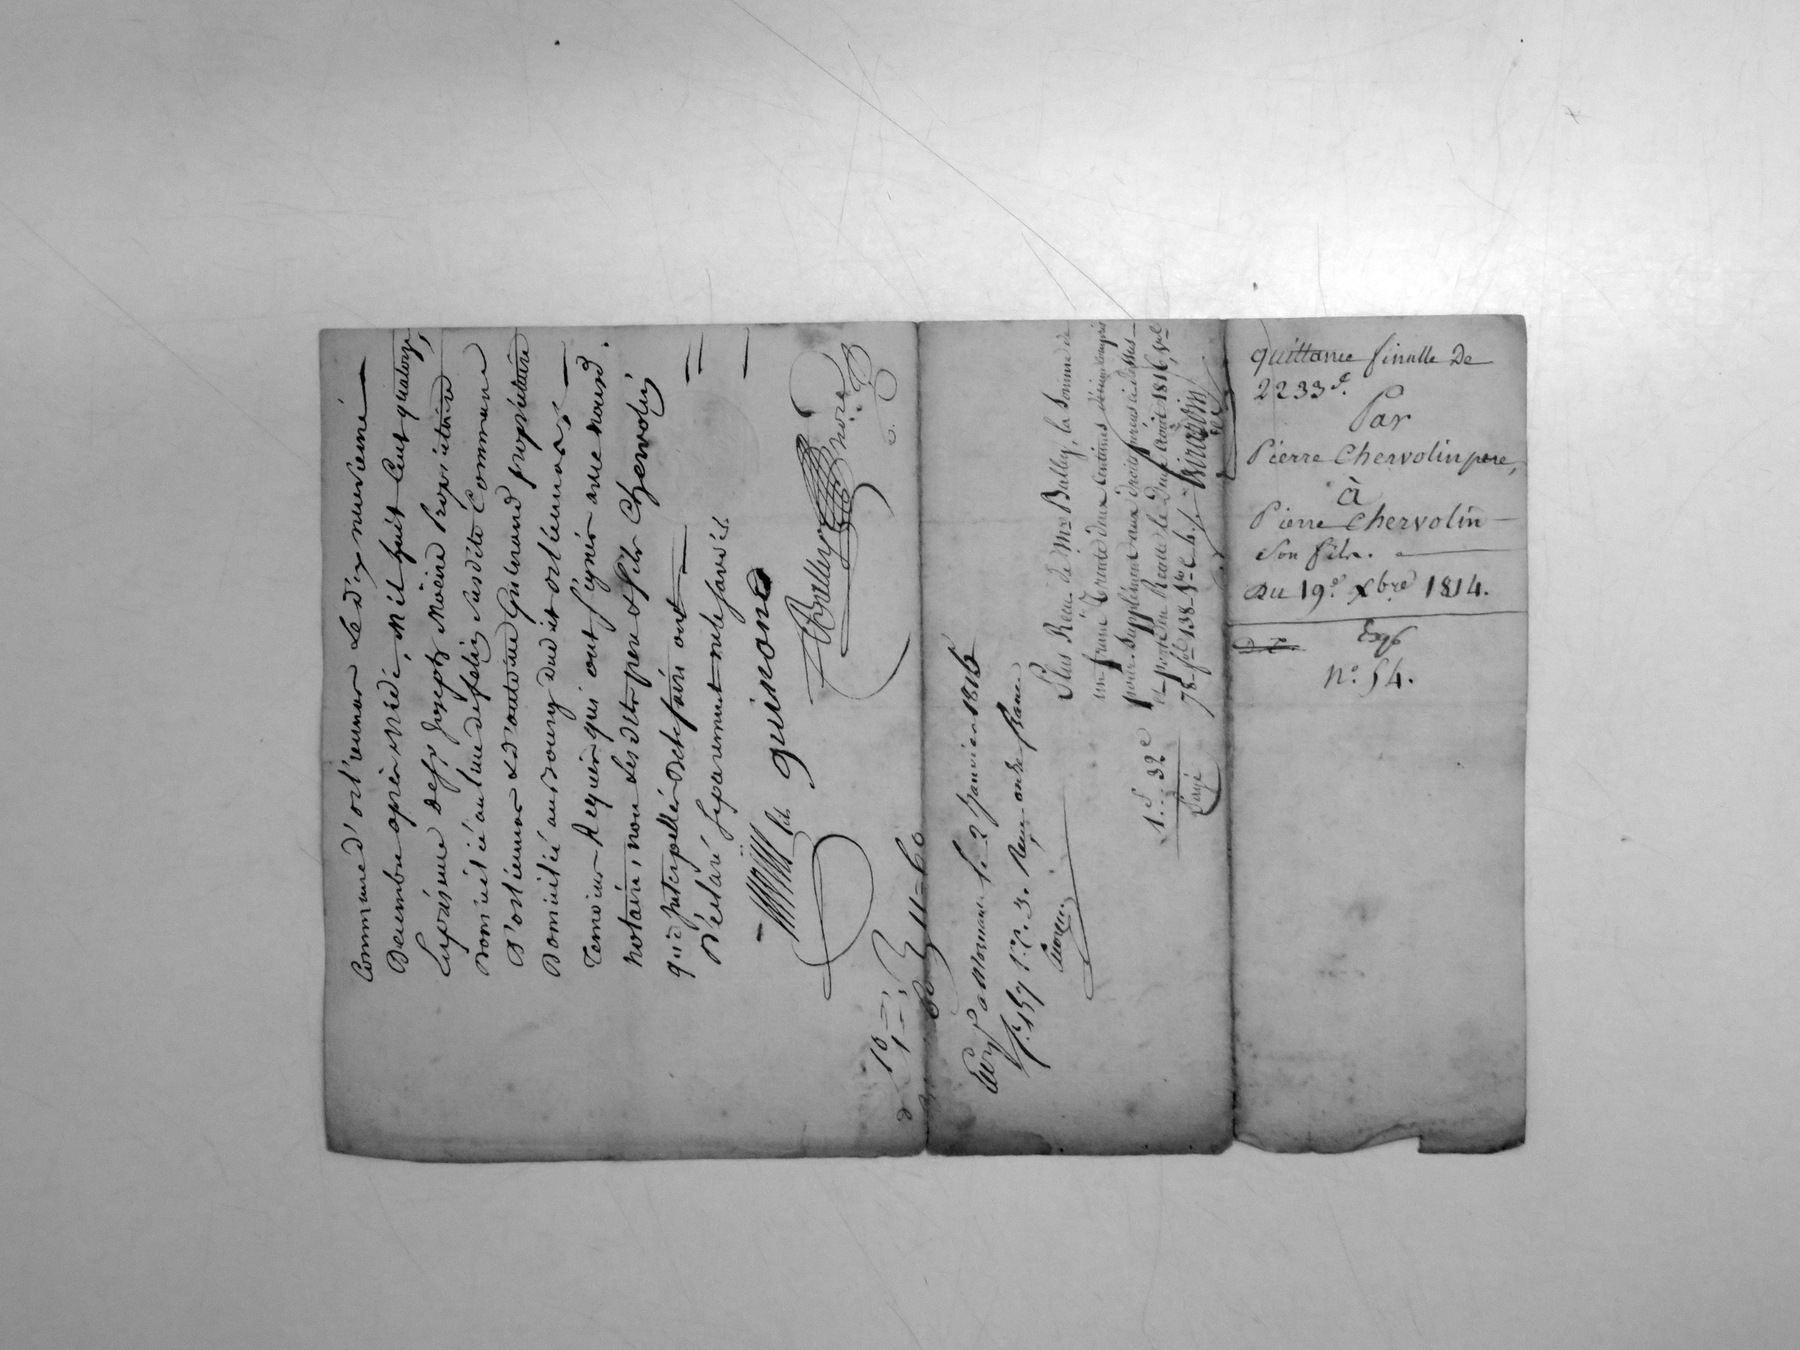 Commune d'orliennas Le dix neuvieme
Decembre après midi, mil huit Cent quatorze,
En présence des Joseph Moëine Proprietaire
domicilié au lieu de susdite Commune
D'orliennas & D'antoine Guinand propriétaire
Domicilié au Bourg dudit orliennas,
Temoins Requis qui ont signés avec nous d.
notaire, non les dits pere & fils Chervolin
qui Interpellés de le faire ont
Declaré separement ne le savoir.
guinand
Bulley
nore
10
1
11-60
à Mornant le 2 Janvier 1816
fo. 157 Vo. C. 3. Reçu onze francs
Plus Recu de Mre Bulley, la somme de
un franc Trente deux Centimes décime Compris
pour Supplément aux droits perçus ci dessus
Recette le Deux Août 1816, vol
78 fol 138 Vo C. 6.
1f. 32c
quittance finalle de
2233f.
Par
Pierre Chervolin pere,
à
Pierre Chervolin
Son fils.
Du 19e. Xbre 1814.
Exp
No. 54.